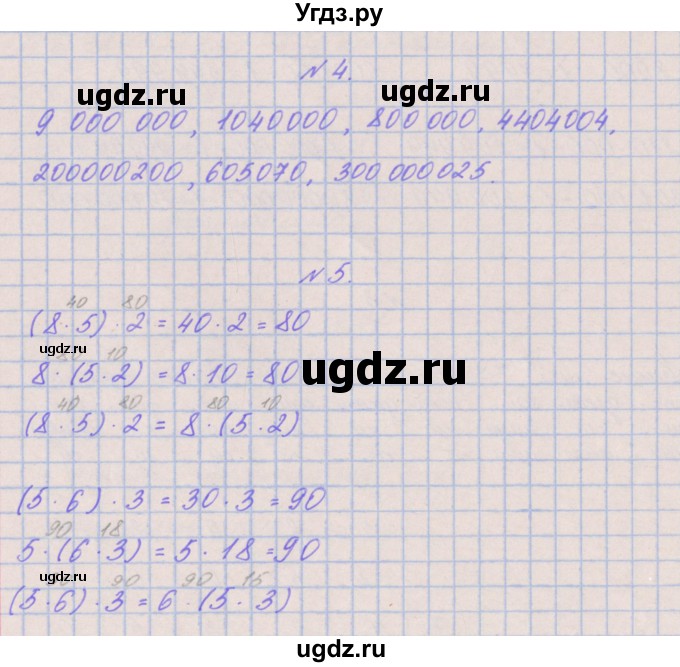 Угдз.ру
№ 4.
ugdz.ru ugdz.ru
9 000 000, 1040000, 800 000, 4404004,
200000200, 605070, 300 000 025.
№ 5.
40 80
(8·5)·2 = 40·2 = 80
ugdz.ru
10
8·(5·2) = 8·10 = 80
ugdz.ru
40 80 80 10
(8·5)·2 = 8·(5·2)
(5·6)·3 = 30·3 = 90
90 18
5·(6·3) = 5·18 = 90
ugdz.ru
90 90 15
(5·6)·3 = 6·(5·3)
ugdz.ru